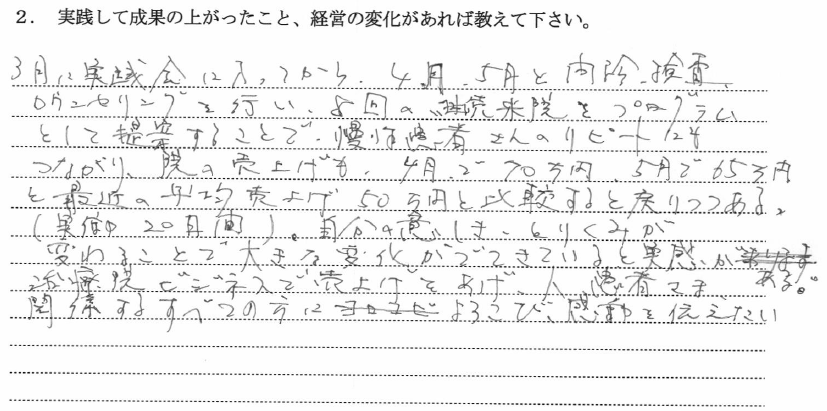 2. 実践して成果の上がったこと、経営の変化があれば教えて下さい。
3月に実践会に入ってから、4月、5月と内診、検査、
カウンセリングを行い、8回の継続来院をプログラム
として提案することで、慢性患者さんのリピートにも
つながり、院の売上げも、4月で70万円、5月で65万円
と最近の平均売上げ50万円と比較すると戻りつつある。
(実働20日間)。自分の意しき、とりくみが
変わることで大きな変化がでてきていると実感が
ある。
治療院ビジネスで売上げをあげ、人、患者さま
関係するすべての方によろこび、感動を伝えたい